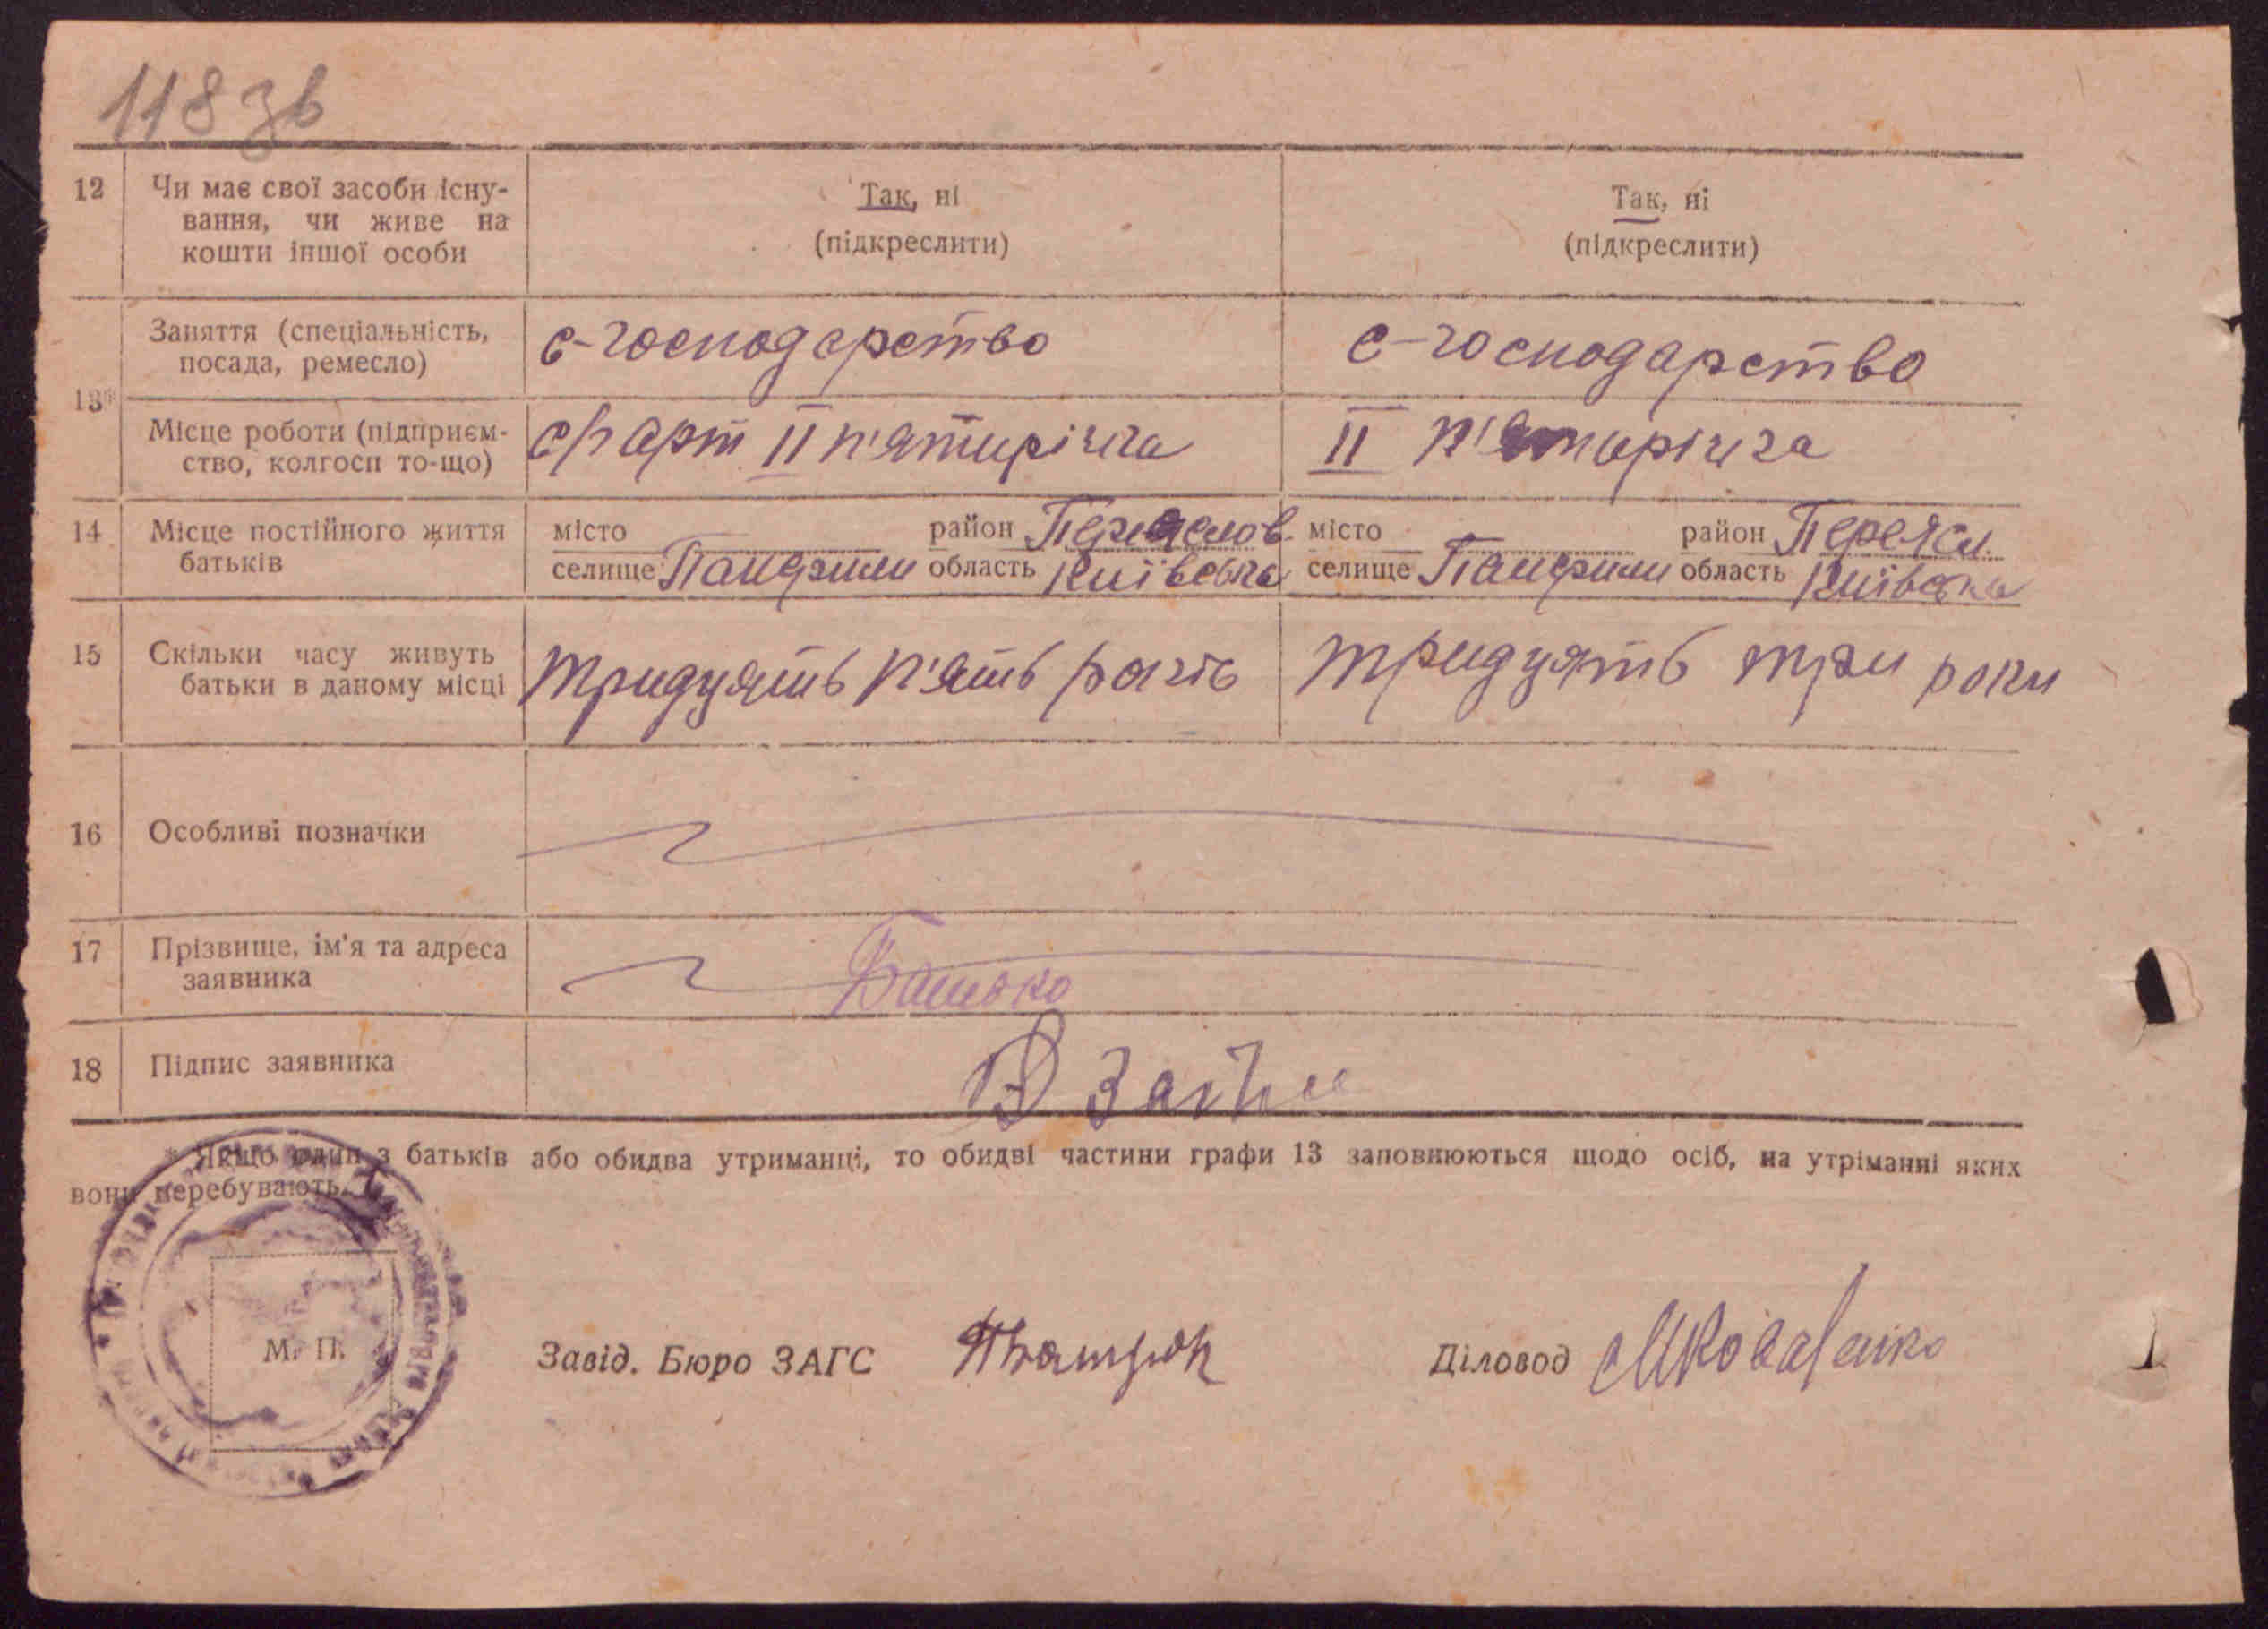 118 зв
12 Чи має свої засоби існу- Так, ні Так, ні
вання, чи живе на (підкреслити) (підкреслити)
кошти іншої особи
13* Заняття (спеціальність, с-господарство с-господарство
посада, ремесло)
Місце роботи (підприєм- с/г арт II п'ятирічча II п'ятирічча
ство, колгосп то-що)
14 Місце постійного життя місто район Переяслов місто район Переясл.
батьків селище Панфили область Київська селище Панфили область Київська
15 Скільки часу живуть тридцять п'ять років тридцять три роки
батьки в даному місці
16 Особливі позначки
17 Прізвище, ім'я та адреса Батько
заявника
18 Підпис заявника
* Якщо один з батьків або обидва утриманці, то обидві частини графи 13 заповнюються щодо осіб, на утріманні яких
вони перебувають.
М. П. Завід. Бюро ЗАГС Діловод МКоваленко